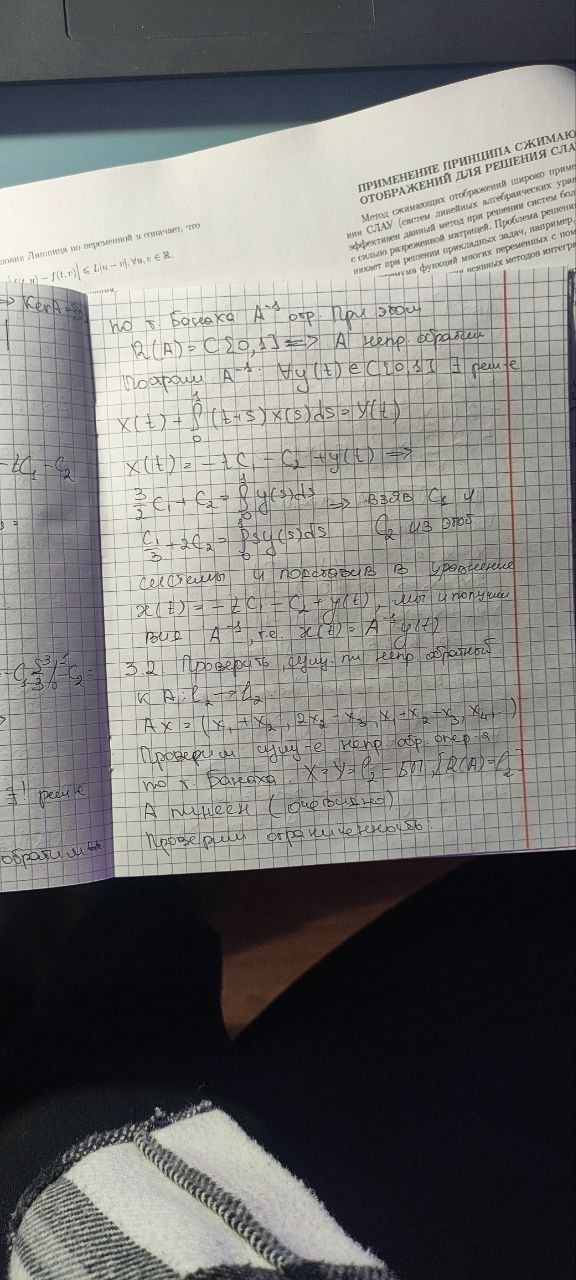 ПРИМЕНЕНИЕ ПРИНЦИПА СЖИМАЮ
ОТОБРАЖЕНИЙ ДЛЯ РЕШЕНИЯ СЛА
Метод сжимающих отображений широко приме
нии СЛАУ (систем линейных алгебраических урав
эффективен данный метод при решении систем бол
с сильно разреженной матрицей. Проблема решени
никает при решении прикладных задач, например,
мума функций многих переменных с пом
неявных методов интегри
ловия Липшица по переменной u означает, что
− f(t, v)| ≤ L|u − v|, ∀u, v ∈ R.
=> KerA =
-tC₁ - C₂
∃! реш-е
обратим
по т. Банаха A⁻¹ огр. При этом
R(A) = C[0,1] => A непр. обратим
Построим A⁻¹: ∀y(t) ∈ C[0,1] ∃ реш-е
x(t) + ∫₀¹ (t+s) x(s)ds = y(t)
x(t) = -tC₁ - C₂ + y(t) =>
3/2 C₁ + C₂ = ∫₀¹ y(s)ds => взяв C₁ и
C₁/3 + 2C₂ = ∫₀¹ sy(s)ds C₂ из этой
системы и подставив в уравнение
x(t) = -tC₁ - C₂ + y(t), мы и получим
вид A⁻¹, т.е. x(t) = A⁻¹y(t)
3.2 Проверить, сущ. ли непр. обратный
к A: l₂ → l₂
Ax = (x₁ + x₂, 2x₂ - x₃, x₁ + x₂ - x₃, x₄, ...)
Проверим сущ-е непр. обр. опер-а
по т. Банаха. X = Y = l₂ - БП, [R(A) = l₂]
A линеен (очевидно)
Проверим ограниченность: